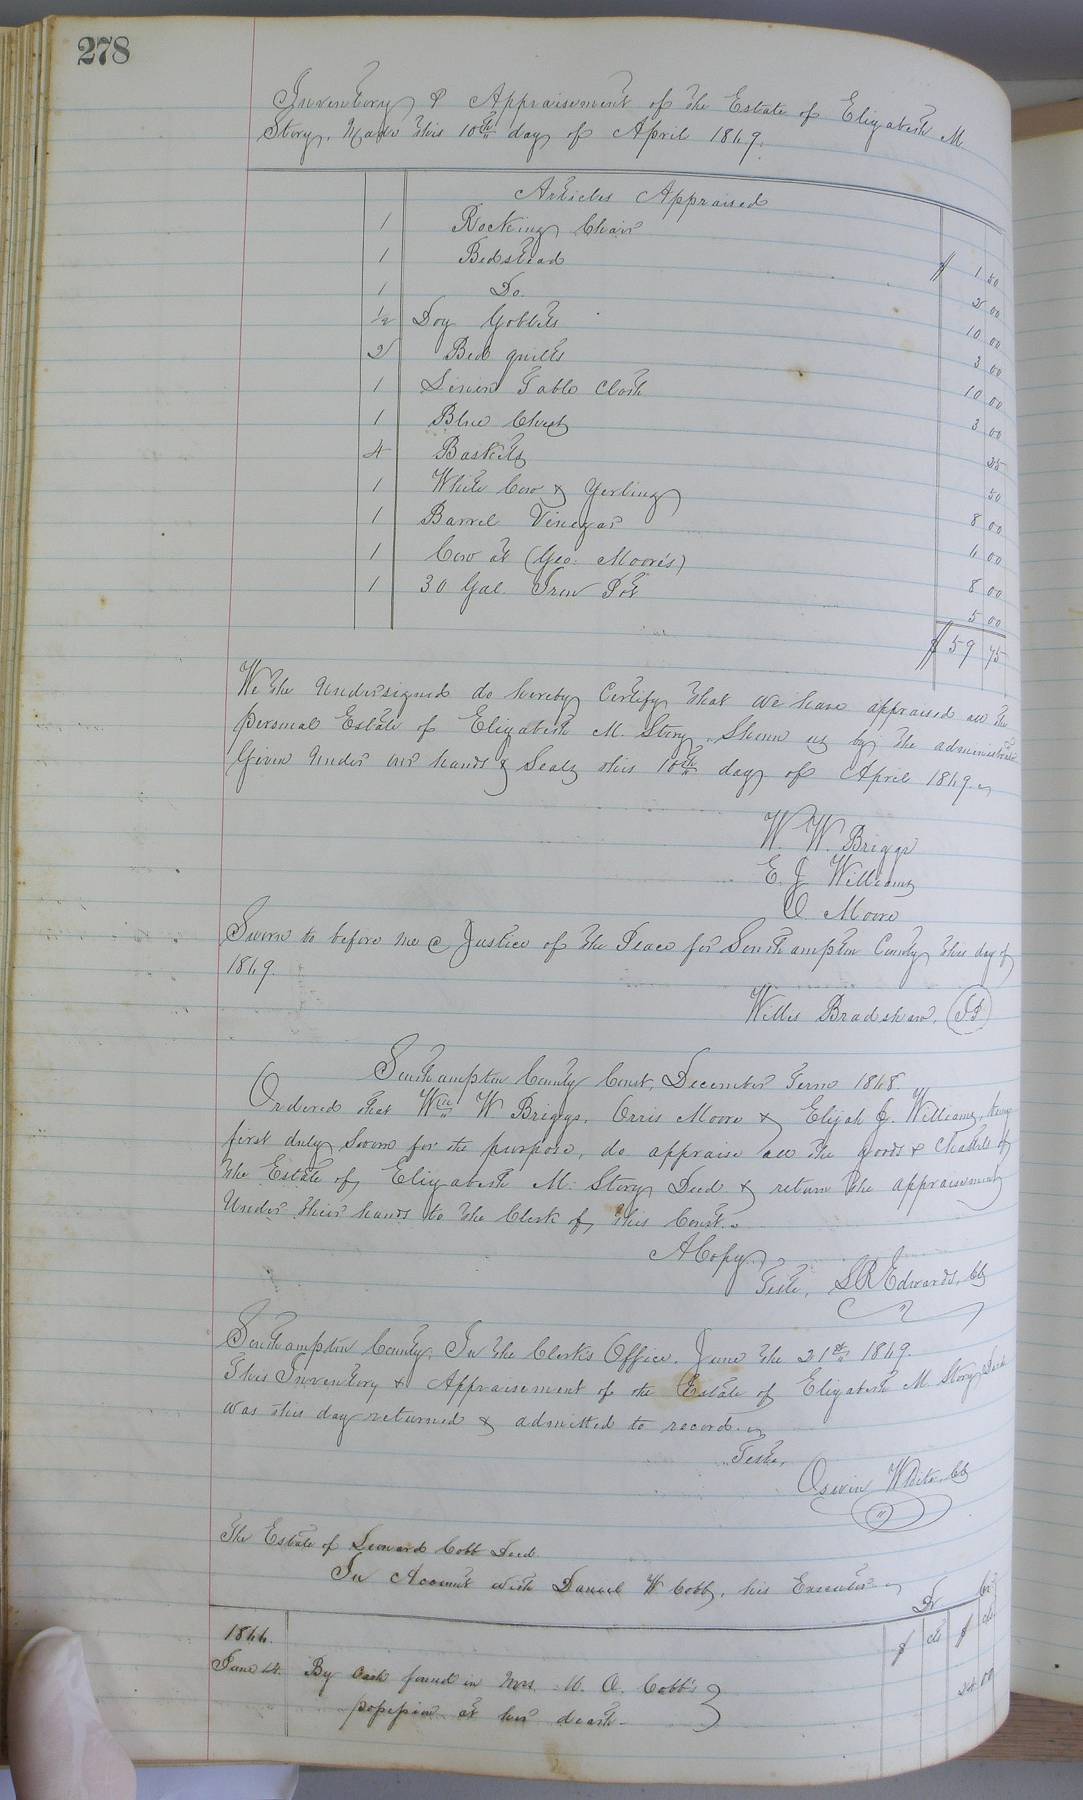 278
Inventory & Appraisement of the Estate of Elizabeth M
Story. Made this 10th day of April 1869.
Articles Appraised
1 Rocking Chair $ 1 50
1 Bedstead 2 00
1 Do. 10 00
½ Doz Gobblets 3 00
2 Bed quilts 10 00
1 Linen Table Cloth 3 00
1 Blue Chest 25
4 Baskets 50
1 White Cow & Yerling 8 00
1 Barrel Vinegar 00
1 Cow at (Geo. Moore's) 8 00
1 30 Gal. Iron Pot 5 00
$ 59 75
We the undersigned do hereby Certify that we have appraised all the
personal Estate of Elizabeth M. Story, Shown us by the administrator
Given under our hands & Seals this 10th day of April 1869.
W. W. Briggs
E. J Williams
O Moore
Sworn to before me a Justice of the Peace for Southampton County this day of
1869.
Willis Bradshaw, JP
Southampton County Court, December Term 1868.
Ordered that Wm W Briggs, Orris Moore & Elijah J. Williams, being
first duly Sworn for the purpose, do appraise all the goods & Chattels of
the Estate of Elizabeth M. Story Decd & return the appraisement
Under their hands to the Clerk of this Court.
A Copy,
Teste, L R Edwards, Clk
Southampton County, In the Clerks Office. June the 21st 1869.
This Inventory & Appraisement of the Estate of Elizabeth M Story Decd
was this day returned & admitted to record.
Teste,
Oswin White, Clk
The Estate of Leonard Cobb Decd.
In Account with Daniel W Cobb, his Executor
Dr Cr
$ cts $ cts
1866.
June 14. By Cash found in Mrs. M. A. Cobb's 24 00
possession at her death